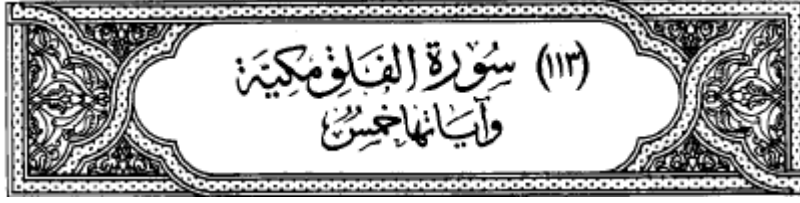 (١١٣) سُورَة الفَلَقِ مَكيَّة
وَآيَاتهَا خَمسٌ